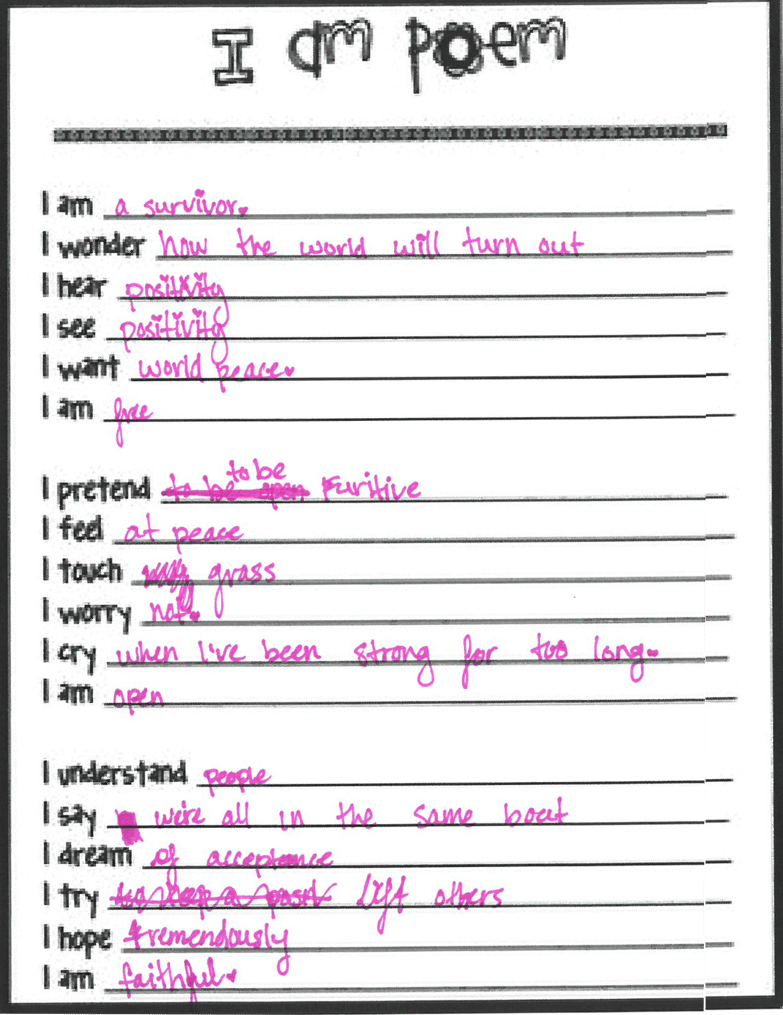 I am poem
I am a survivor.
I wonder how the world will turn out
I hear positivity
I see positivity
I want world peace.
I am free
to be
I pretend to be open Furitive
I feel at peace
I touch grass
I worry not.
I cry when I've been strong for too long.
I am open
I understand people
I say we're all in the same boat
I dream of acceptance
I try lift others
I hope tremendously
I am faithful.